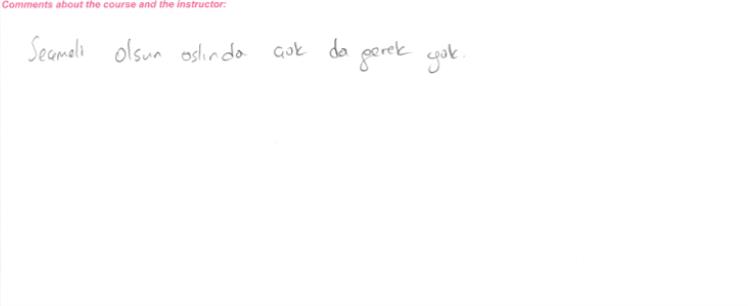 Comments about the course and the instructor:
Seçmeli olsun aslında çok da gerek yok.